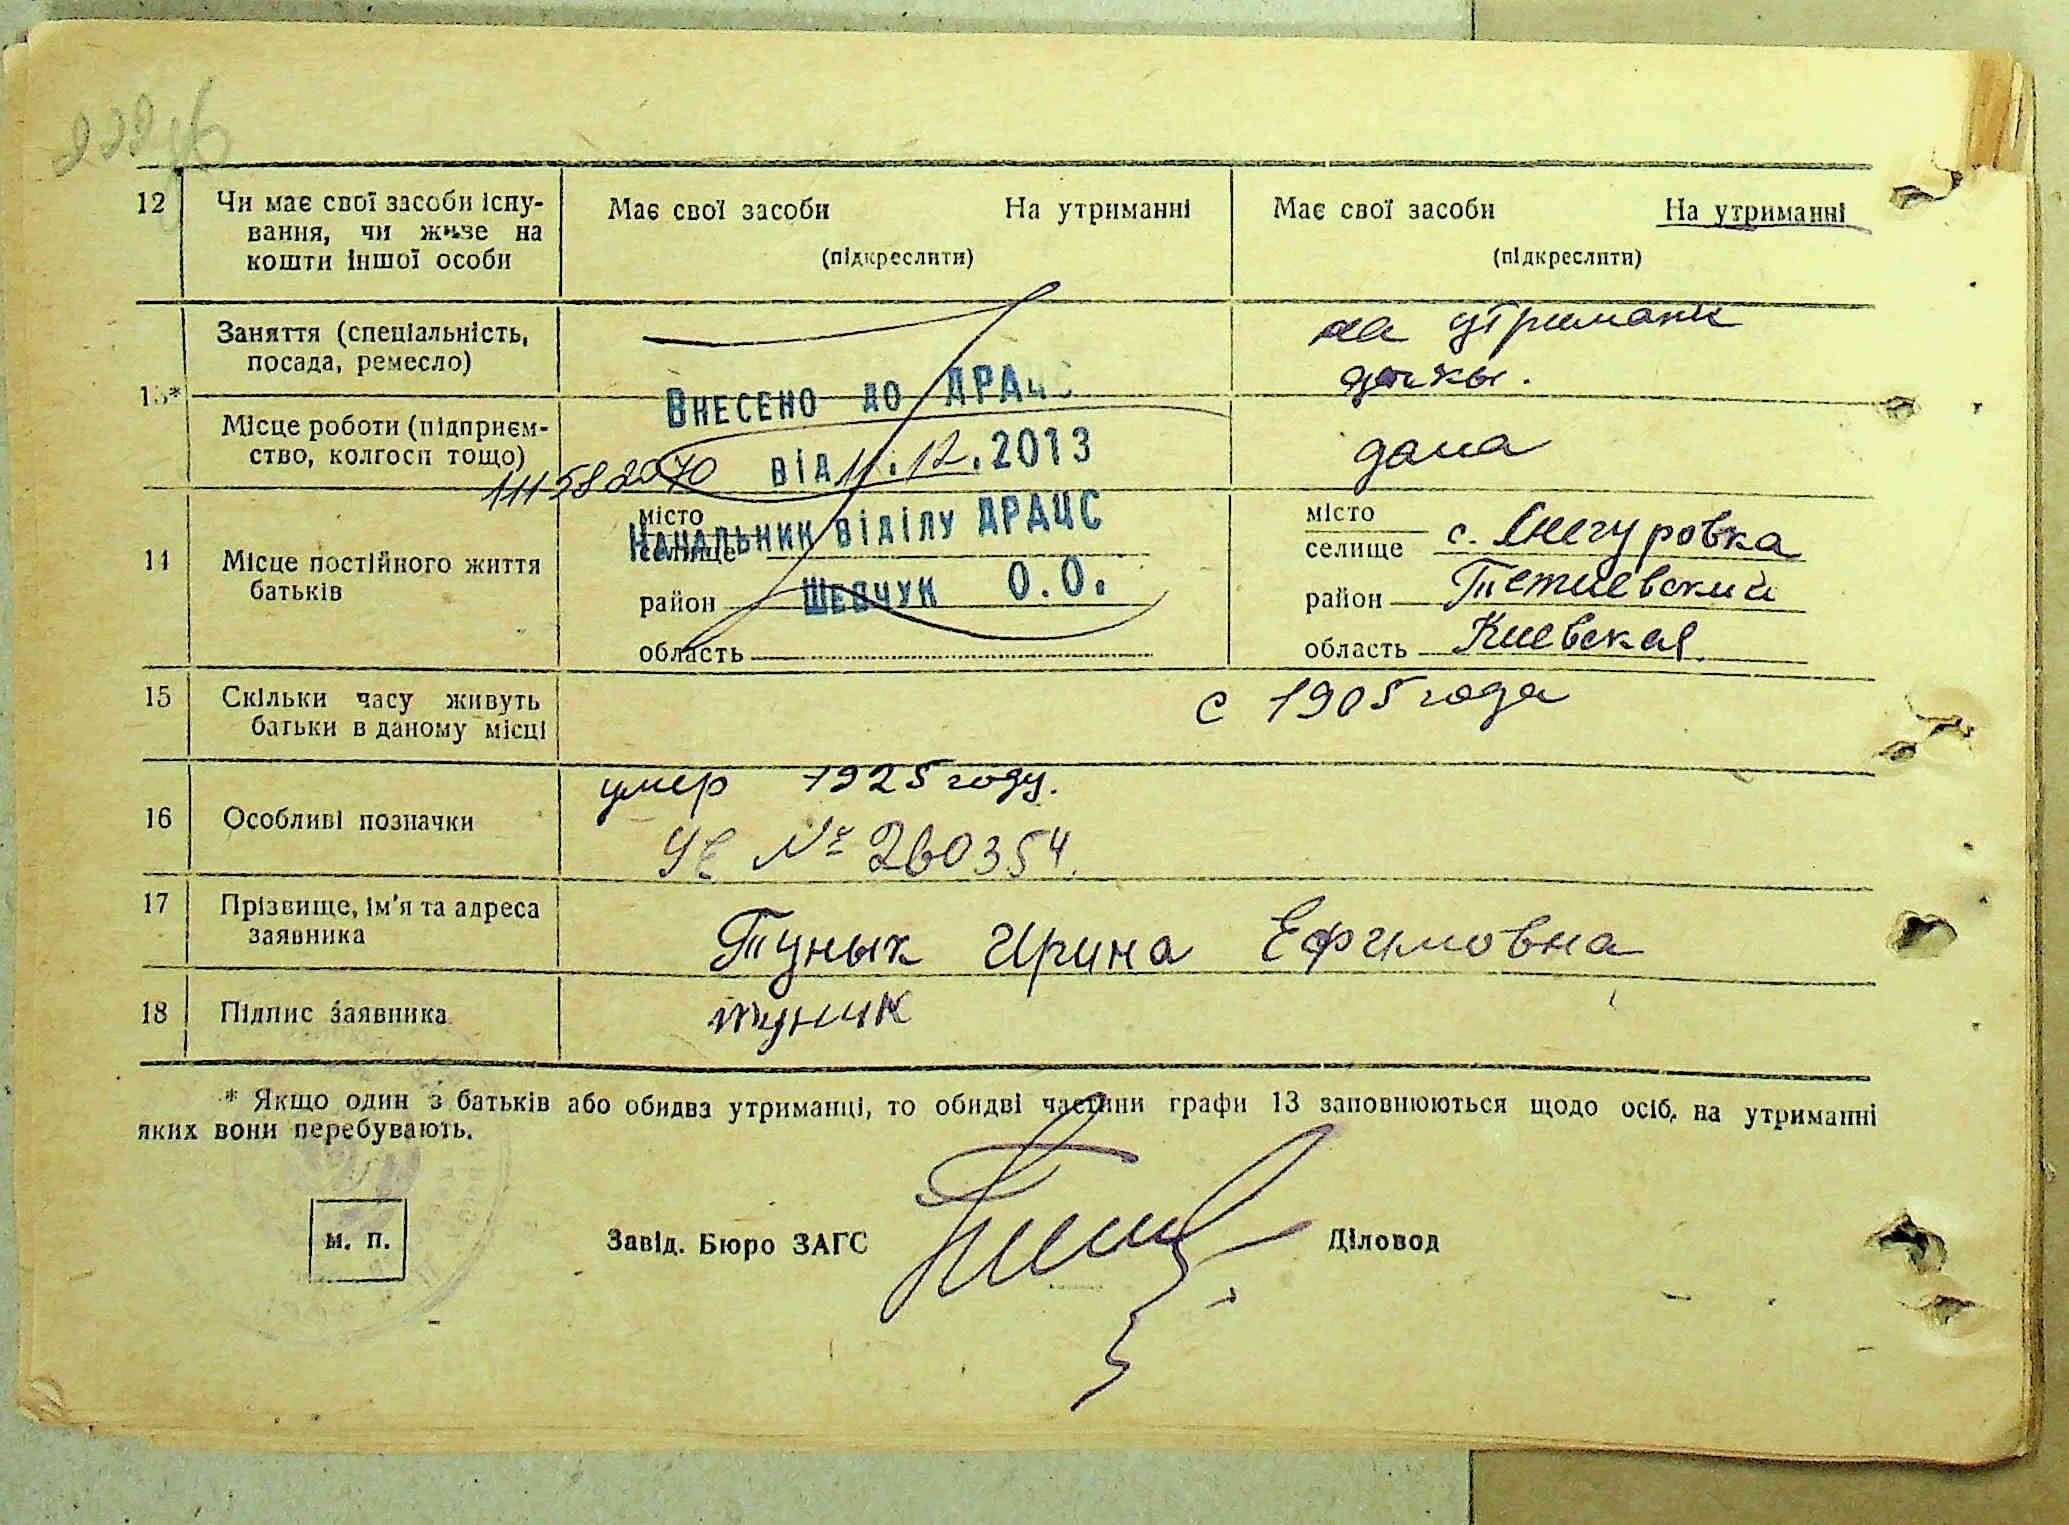 12 Чи має свої засоби існу-
вання, чи живе на
кошти іншої особи
Має свої засоби На утриманні
(підкреслити)
Має свої засоби На утриманні
(підкреслити)
13* Заняття (спеціальність,
посада, ремесло)
на утримани
дочкы.
Місце роботи (підприєм-
ство, колгосп тощо)
дома
Внесено до ДРАЦС
від 11.12.2013
Начальник відділу ДРАЦС
Шевчук О.О.
14 Місце постійного життя
батьків
місто
селище
район
область
місто
селище с. Снегуровка
район Тетиевский
область Киевская
15 Скільки часу живуть
батьки в даному місці
с 1905 года
16 Особливі позначки
умер 1925 году.
№ 260354.
17 Прізвище, ім'я та адреса
заявника
Тунык Ирина Ефимовна
18 Підпис заявника
туник
* Якщо один з батьків або обидва утриманці, то обидві частини графи 13 заповнюються щодо осіб, на утриманні
яких вони перебувають.
м. п.
Завід. Бюро ЗАГС Діловод